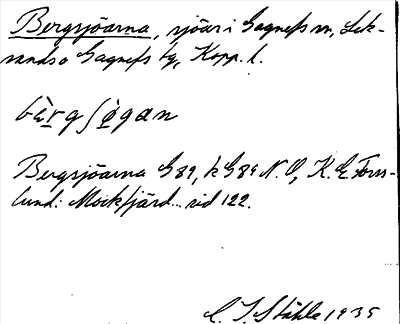 Bergsjöarna, sjöar i Gagnefs sn, Lek-
sands o Gagnefs tg, Kopp. l.
bèrgʃøgan
Bergsjöarna G 89, k G 89 N.O, K.E. Fors-
lund: Mockfjärd... sid 122.
C. I. Ståhle 1935